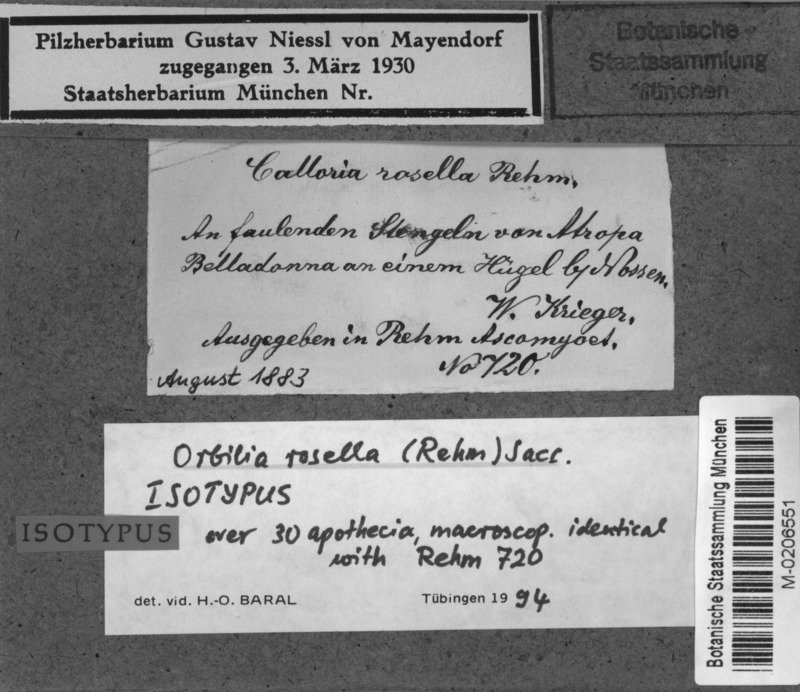 Pilzherbarium Gustav Niessl von Mayendorf
zugegangen 3. März 1930
Staatsherbarium München Nr.
Botanische
Staatssammlung
München
Calloria rosella Rehm.
An faulenden Stengeln von Atropa
Belladonna an einem Hügel by Nossen.
W. Krieger.
Ausgegeben in Rehm Ascomycet.
No 720.
August 1883
Orbilia rosella (Rehm) Sacc.
ISOTYPUS
ISOTYPUS
over 30 apothecia, macroscop. identical
with Rehm 720
det. vid. H.-O. BARAL Tübingen 19 94
Botanische Staatssammlung München
M-0206551